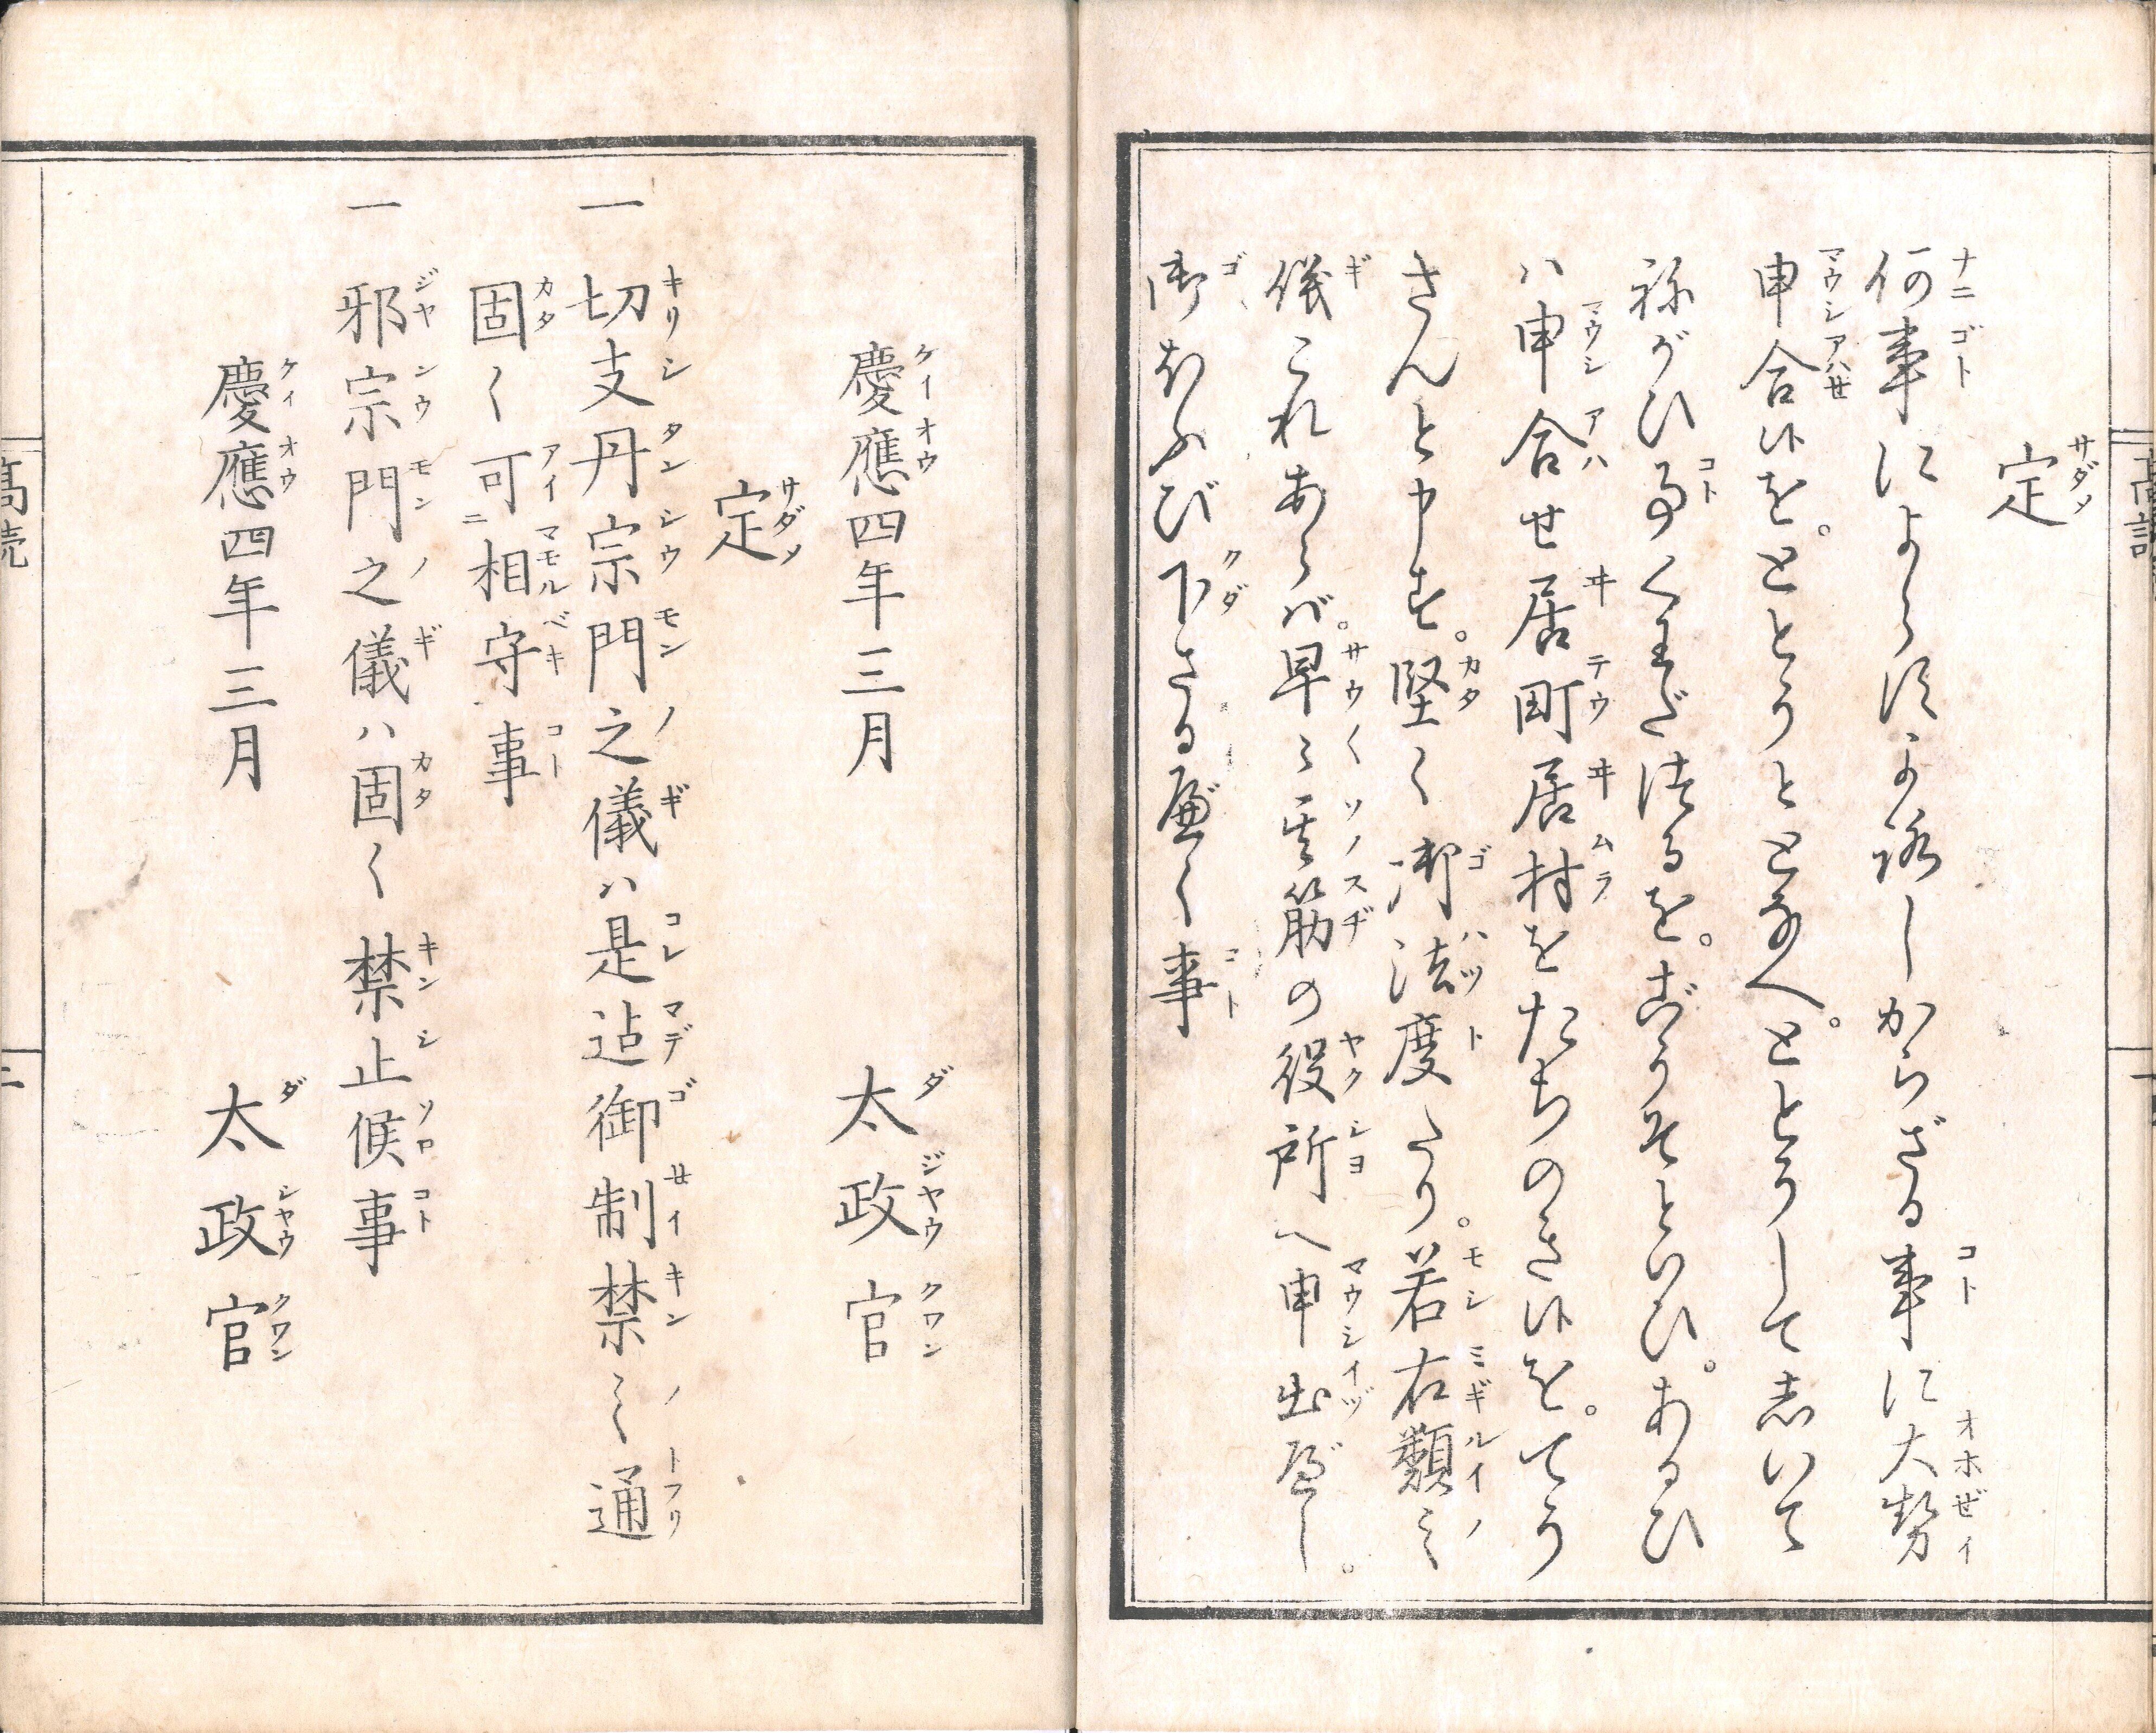 定
何事によらすよろしからざる事に大勢
申合候を。ととうととなへ。ととうして志いて
祢がひ事くわだつるを。ごうそといひ。あるひ
ハ申合せ居町居村をたちのき候を。てう
さんと申す。堅く御法度たり。若右類之
儀これあらバ。早々其筋の役所へ申出べし。
御ほふび下さるべく事
慶應四年三月　太政官
定
一　切支丹宗門之儀ハ是迠御制禁之通
固く可ニ相守事
一　邪宗門之儀ハ固く禁止候事
慶應四年三月　太政官